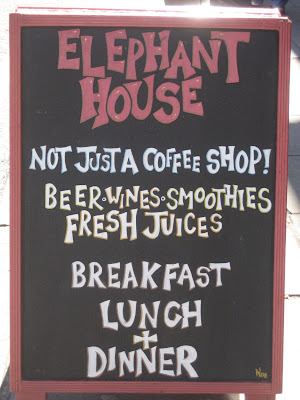 ELEPHANT
HOUSE
NOT JUST A COFFEE SHOP!
BEER·WINES·SMOOTHIES
FRESH JUICES
BREAKFAST
LUNCH
+
DINNER